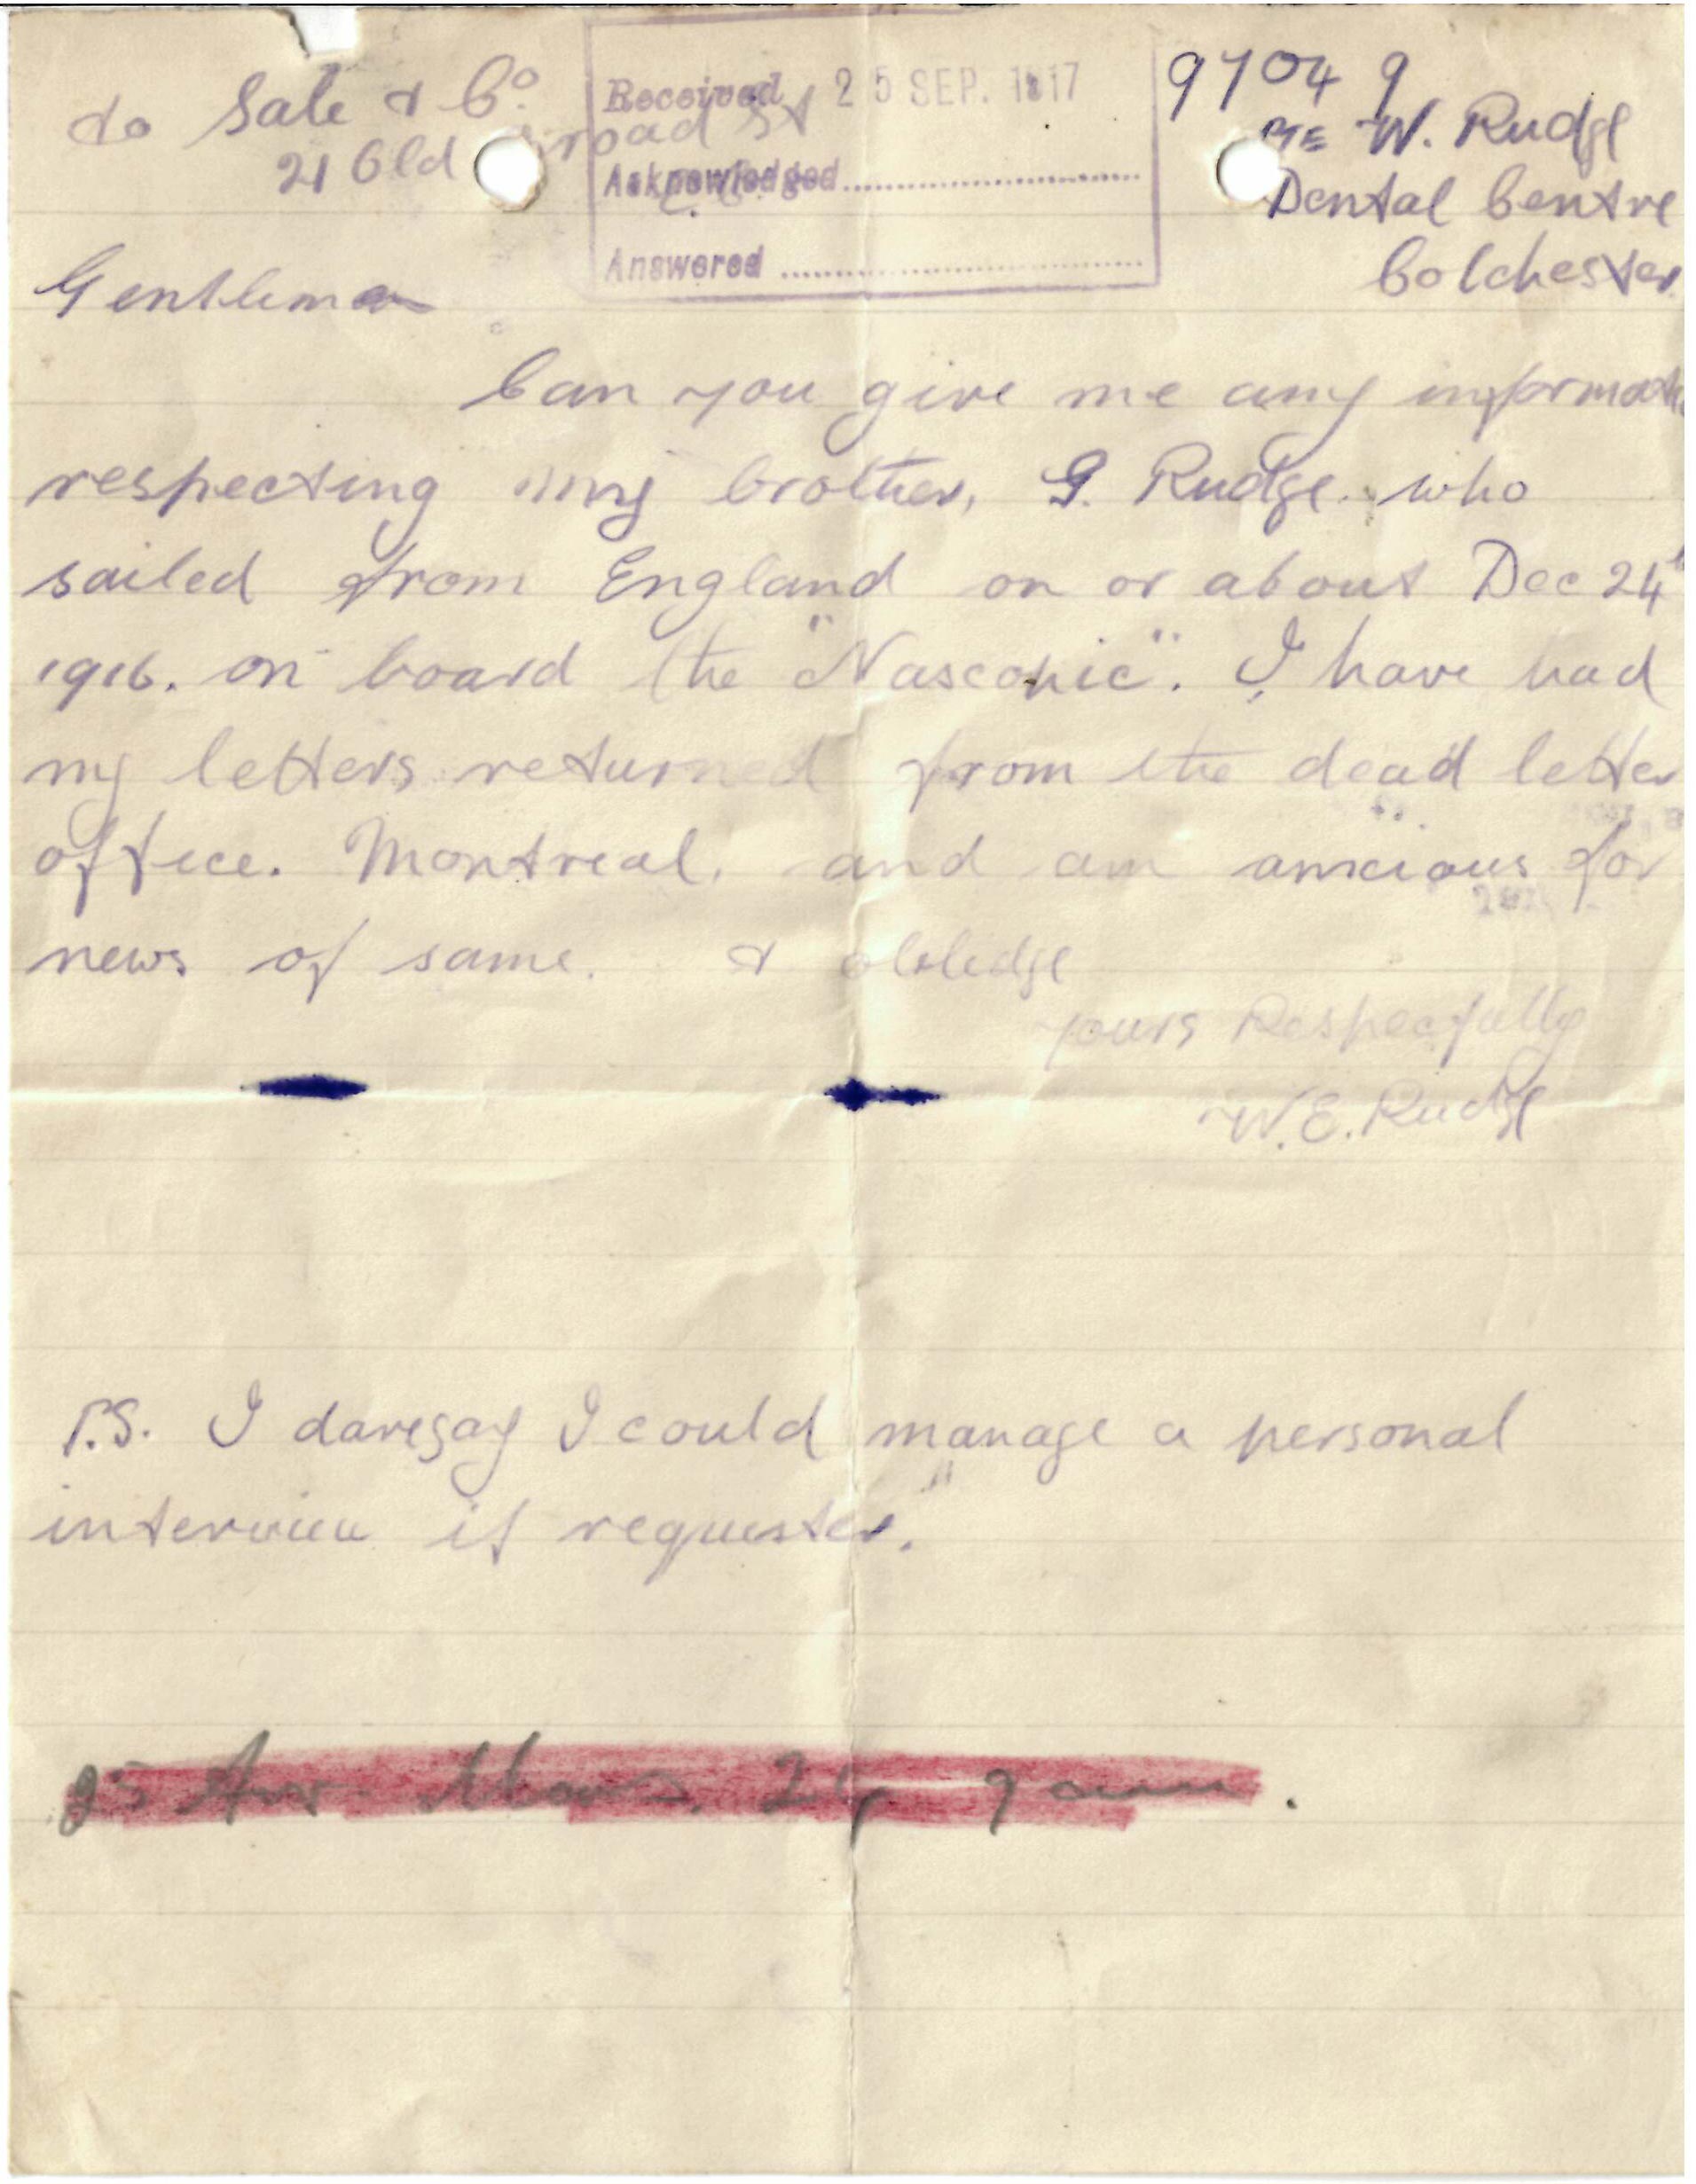 to Sale & Co.
21 Old Broad St
E.C.
Received 25 SEP. 1917
Acknowledged
Answered
97049
PTE W. Rudge
Dental Centre
Colchester.
Gentlemen
Can you give me any informati
respecting my brother, G. Rudge. who
sailed from England on or about Dec 24th
1916. on board the "Nascopic". I have had
my letters returned from the dead letter
office. Montreal. and am anxious for
news of same. & obledge
yours Respecfully
W.E. Rudge
P.S. I daresay I could manage a personal
interview if requested.